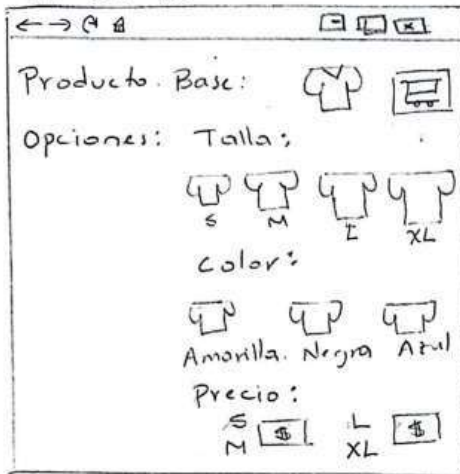 Producto Base:
Opciones: Talla:
S M L XL
Color:
Amarilla. Negra Azul
Precio:
S $ L $
M XL